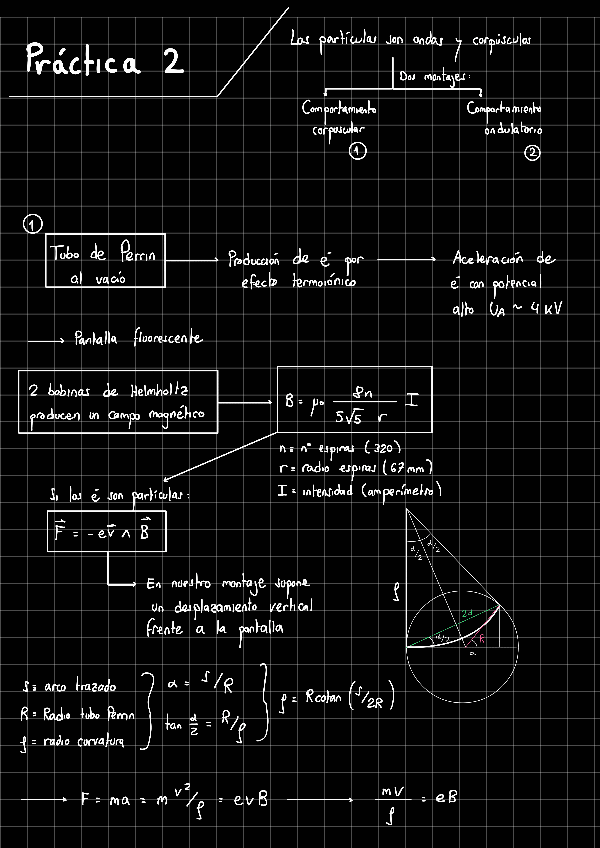 Práctica 2
Las partículas son ondas y corpúsculos
Dos montajes:
Comportamiento
corpuscular
1
Comportamiento
ondulatorio
2
1
Tubo de Perrin
al vacío
Producción de e⁻ por
efecto termoiónico
Aceleración de
e⁻ con potencial
alto U_A ~ 4 KV
Pantalla fluorescente
2 bobinas de Helmholtz
producen un campo magnético
B = μ₀ 8n / (5√5 r) I
n = nº espiras (320)
r = radio espiras (67 mm)
I = intensidad (amperímetro)
Si los e⁻ son partículas:
F⃗ = -e v⃗ ∧ B⃗
En nuestro montaje supone
un desplazamiento vertical
frente a la pantalla
α/2
α/2
ρ
2d
α/2
R
α
S = arco trazado
R = Radio tubo Perrin
ρ = radio curvatura
α = S/R
tan α/2 = R/ρ
ρ = R cotan (S/2R)
F = ma = m v²/ρ = e v B
mv/ρ = eB